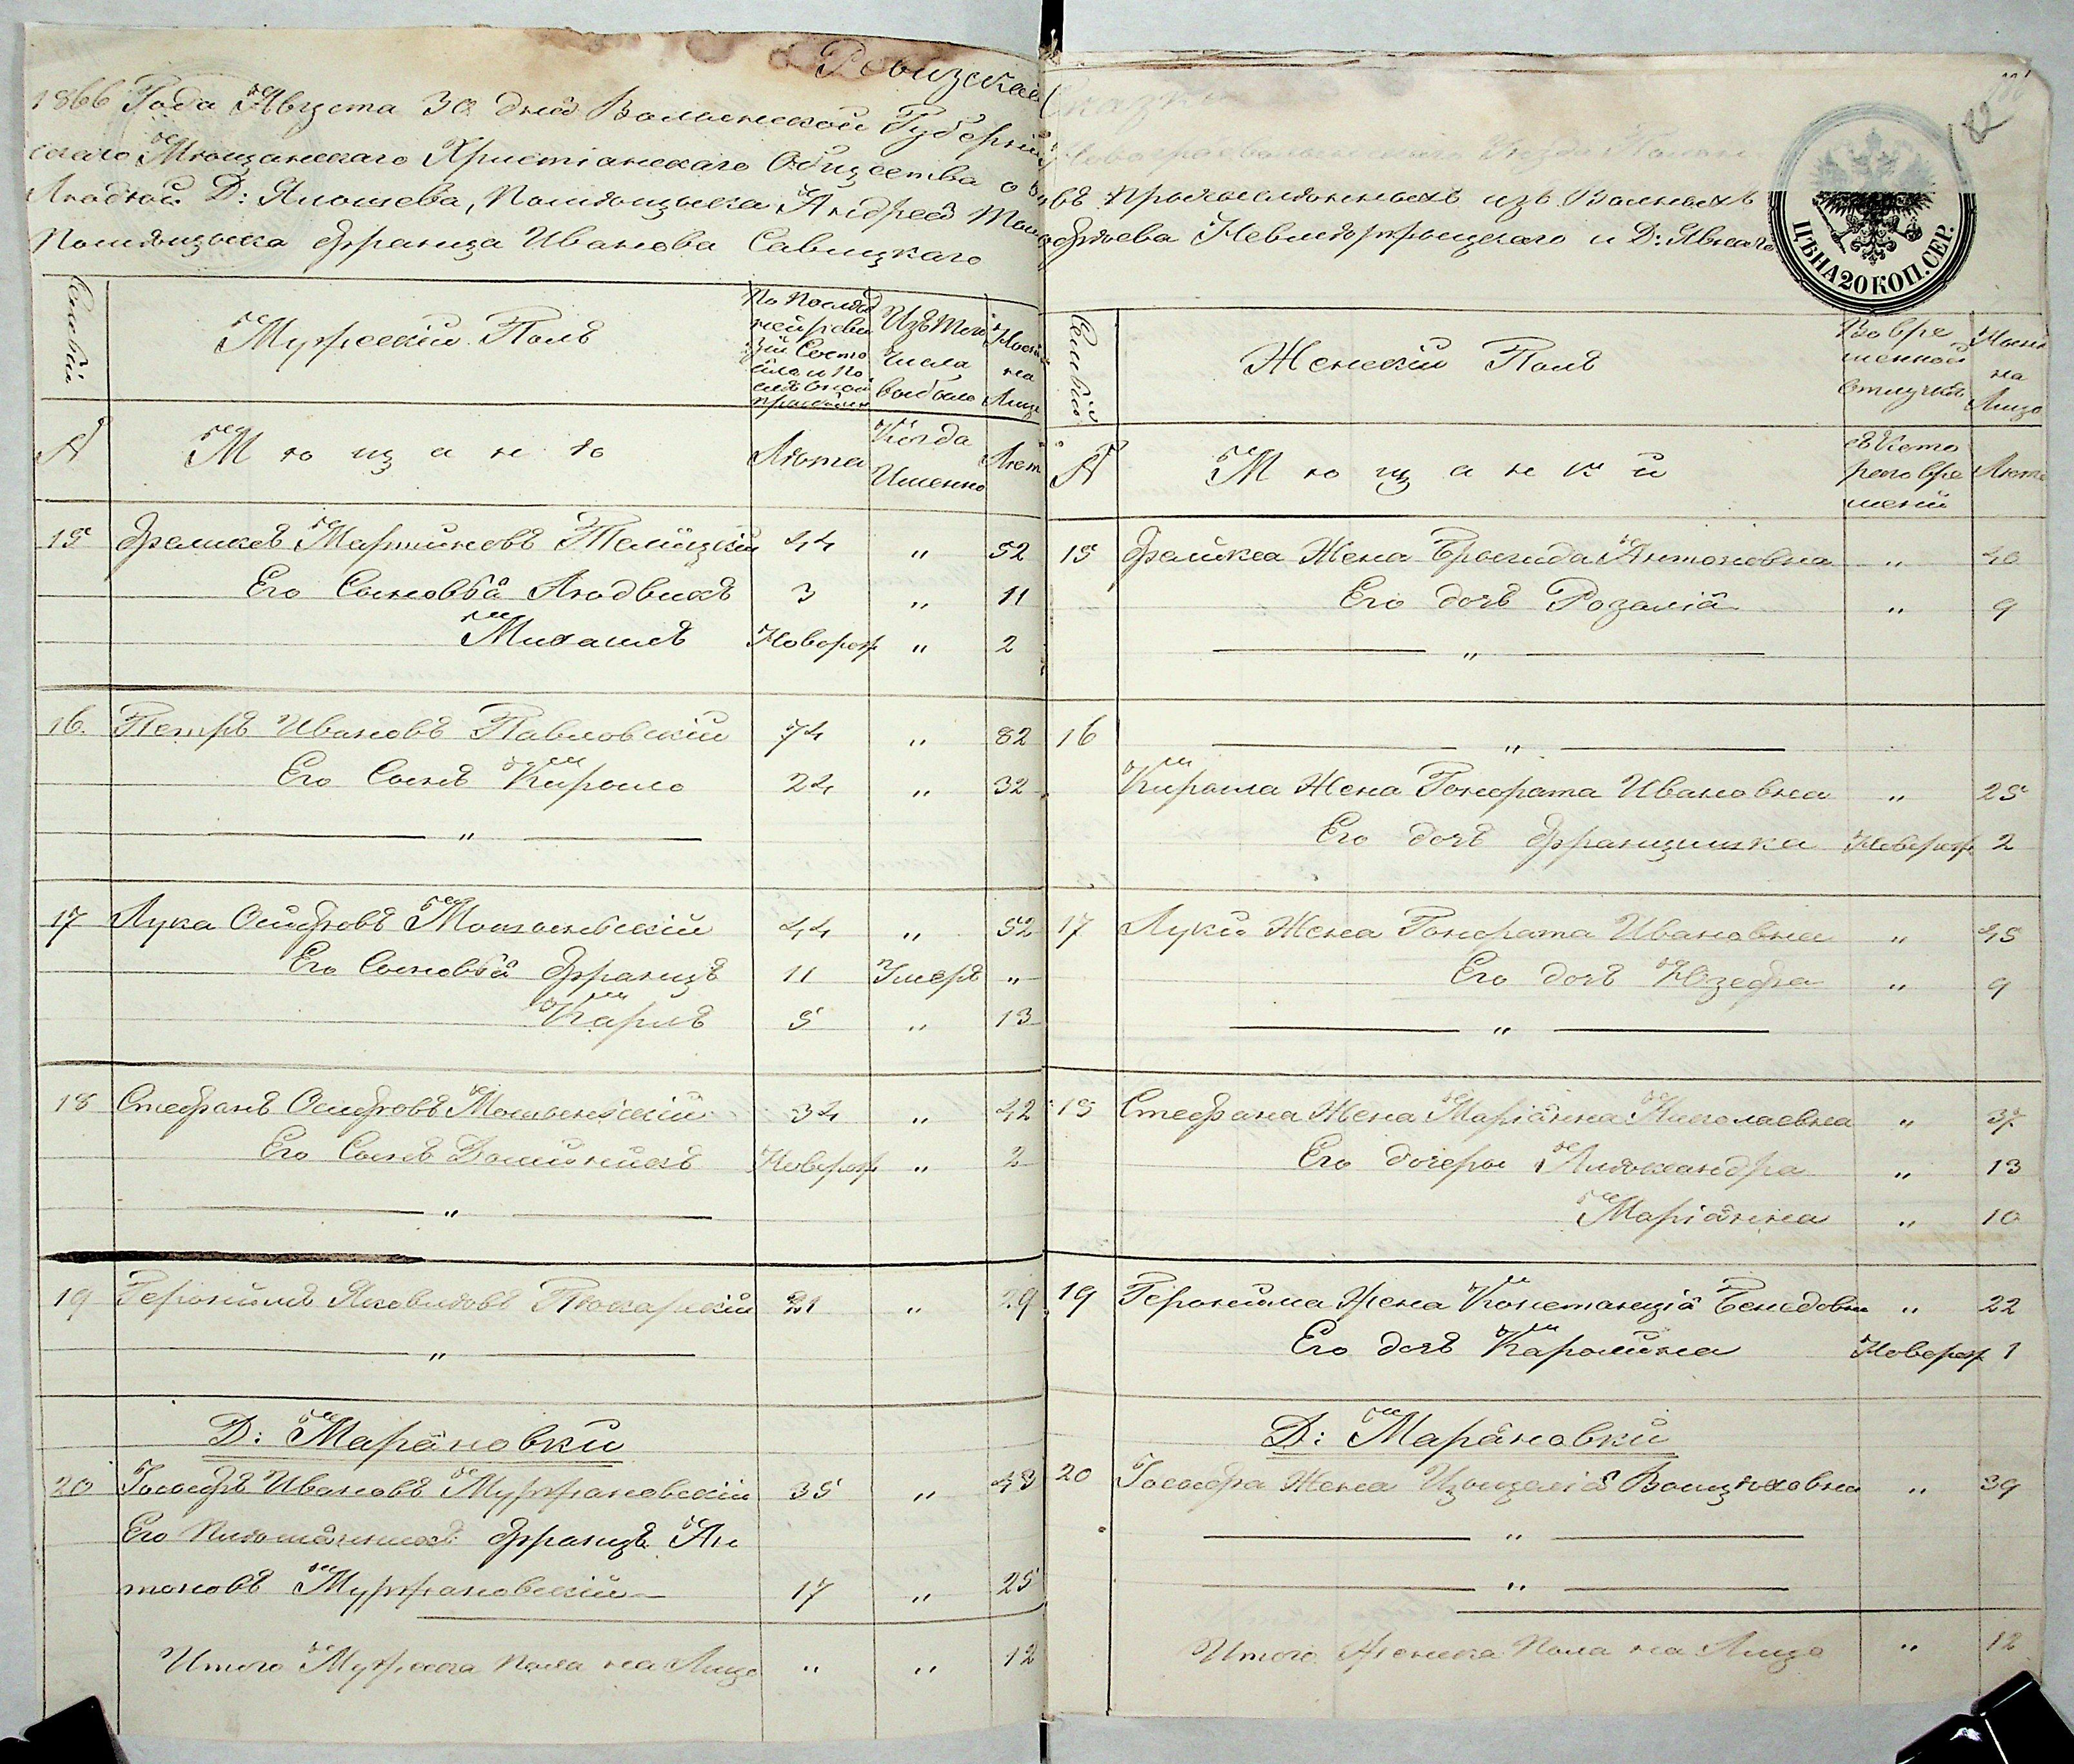 Ревизская Сказка
1866 Года Августа 30 дня Волынской Губерніи Новоградволынскаго Уезда
скаго Мѣщанскаго Христіанскаго Общества о въ вѣ причисленныхъ изъ Вольныхъ
Людной Д: Яношева, Помѣщика Андрея и Д:
Помѣщика Франца Иванова Савицкаго
ЦѢНА 20 КОП. СЕР.
Семьи
Мужескій Полъ
По послѣд
ней реви
зіи Состо
яло и по
слѣ оной
Изъ того
числа
выбыло
Нынѣ
на
Лице
№
Мѣщане
Лѣта
Когда
Именно
Лѣт
15 Феликсъ Мартиновъ 44 " 52
Его Сыновья Людвикъ 3 " 11
Михаилъ Новорож " 2
16. Петръ Ивановъ Павловскій 74 " 82
Его Сынъ Кирыло 24 " 32
"
17 Лука Осифовъ 44 " 52
Его Сыновья Францъ 11 Умеръ "
Карлъ 5 " 13
18 Стефанъ Осифовъ 34 " 42
Его Сынъ Доминикъ Новорож " 2
"
19 Геронимъ 21 " 29
"
Д: Марäновки
20 Іосифъ Ивановъ Муржановскій 35 " 43
Его Племäнникъ Францъ Ан
тоновъ Муржановскій 17 " 25
Итого Мужеска пола на Лице " " 12
Семьи
Женскій Полъ
Во вре
менной
отлучкѣ
Нынѣ
на
Лицо
№
Мѣщанки
съ Кото
раго вре
мени
Лѣта
15 Феликса Жена Брыгида Антоновна " 40
Его дочъ Розалія " 9
"
16 "
Кирыла Жена Гонората Ивановна " 25
Его дочъ Францишка Новорож 2
17 Луки Жена Гонората Ивановна " 45
Его дочъ Юзефа " 9
"
18 Стефана Жена Маріянна Николаевна " 37
Его дочеры Александра " 13
Маріянна " 10
19 Геронима Жена Констанція " 22
Его дочъ Каролина Новорож 1
Д: Марäновки
20 Іосифа Жена Войцѣховна " 39
"
"
Итого Женска Пола на Лицо " 12